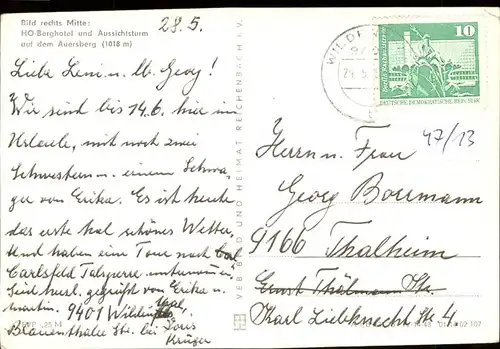 Bild rechts Mitte:
HO-Berghotel und Aussichtsturm
auf dem Auersberg (1018 m)
28.5.
Liebe Leni u. lb. Georg!
Wir sind bis 14.6. hier im
Urlaub, mit noch zwei
Schwestern u. einem Schwa-
ger von Erika. Es ist heute
das erste Mal schönes Wetter,
und haben eine Tour nach
Carlsfeld Talsperre unternommen
Seid herzl. gegrüßt von Erika u.
Martin. 9401 Wildenthal,
Blauenthaler Str. bei Doris
Krüger
VEB BILD UND HEIMAT REICHENBACH i. V.
WILDEN
10
DEUTSCHE DEMOKRATISCHE REPUBLIK
47/13
Herrn u. Frau
Georg Borrmann
9166 Thalheim
Ernst Thälmann Str.
Karl Liebknecht Str. 4
107